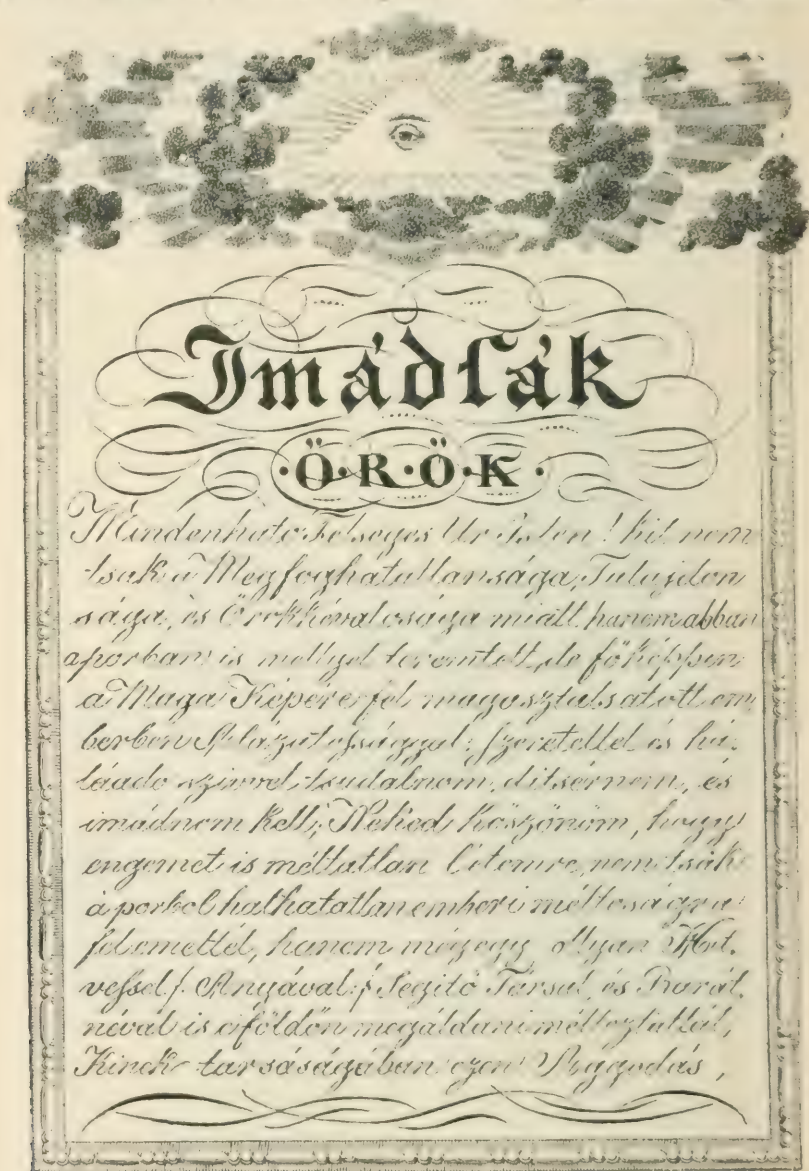 Imádſák
·Ö·R·Ö·K·
Mindenható Felséges Ur Isten! kit nem
tsak a' Megfoghatatlansága, Tulajdon
sága, és Örökkévalosága miatt, hanem abban
a porban is mellyet teremtett, de főképpen
a' Maga Képére fel magasztalsatott em
berben Alázatossággal: szeretettel és há:
láado szivvel tsudálnom, ditsérnem, és
imádnom kell; Néked köszönöm, hogy
engemet is méltatlan létemre, nem tsak
a porbol halhatatlan emberi méltoságra
felemeltél, hanem még egy ollyan
Anyával Segitő Társal, és Barát
néval is e földön megáldani méltoztattál,
Kinek társáságában ezen